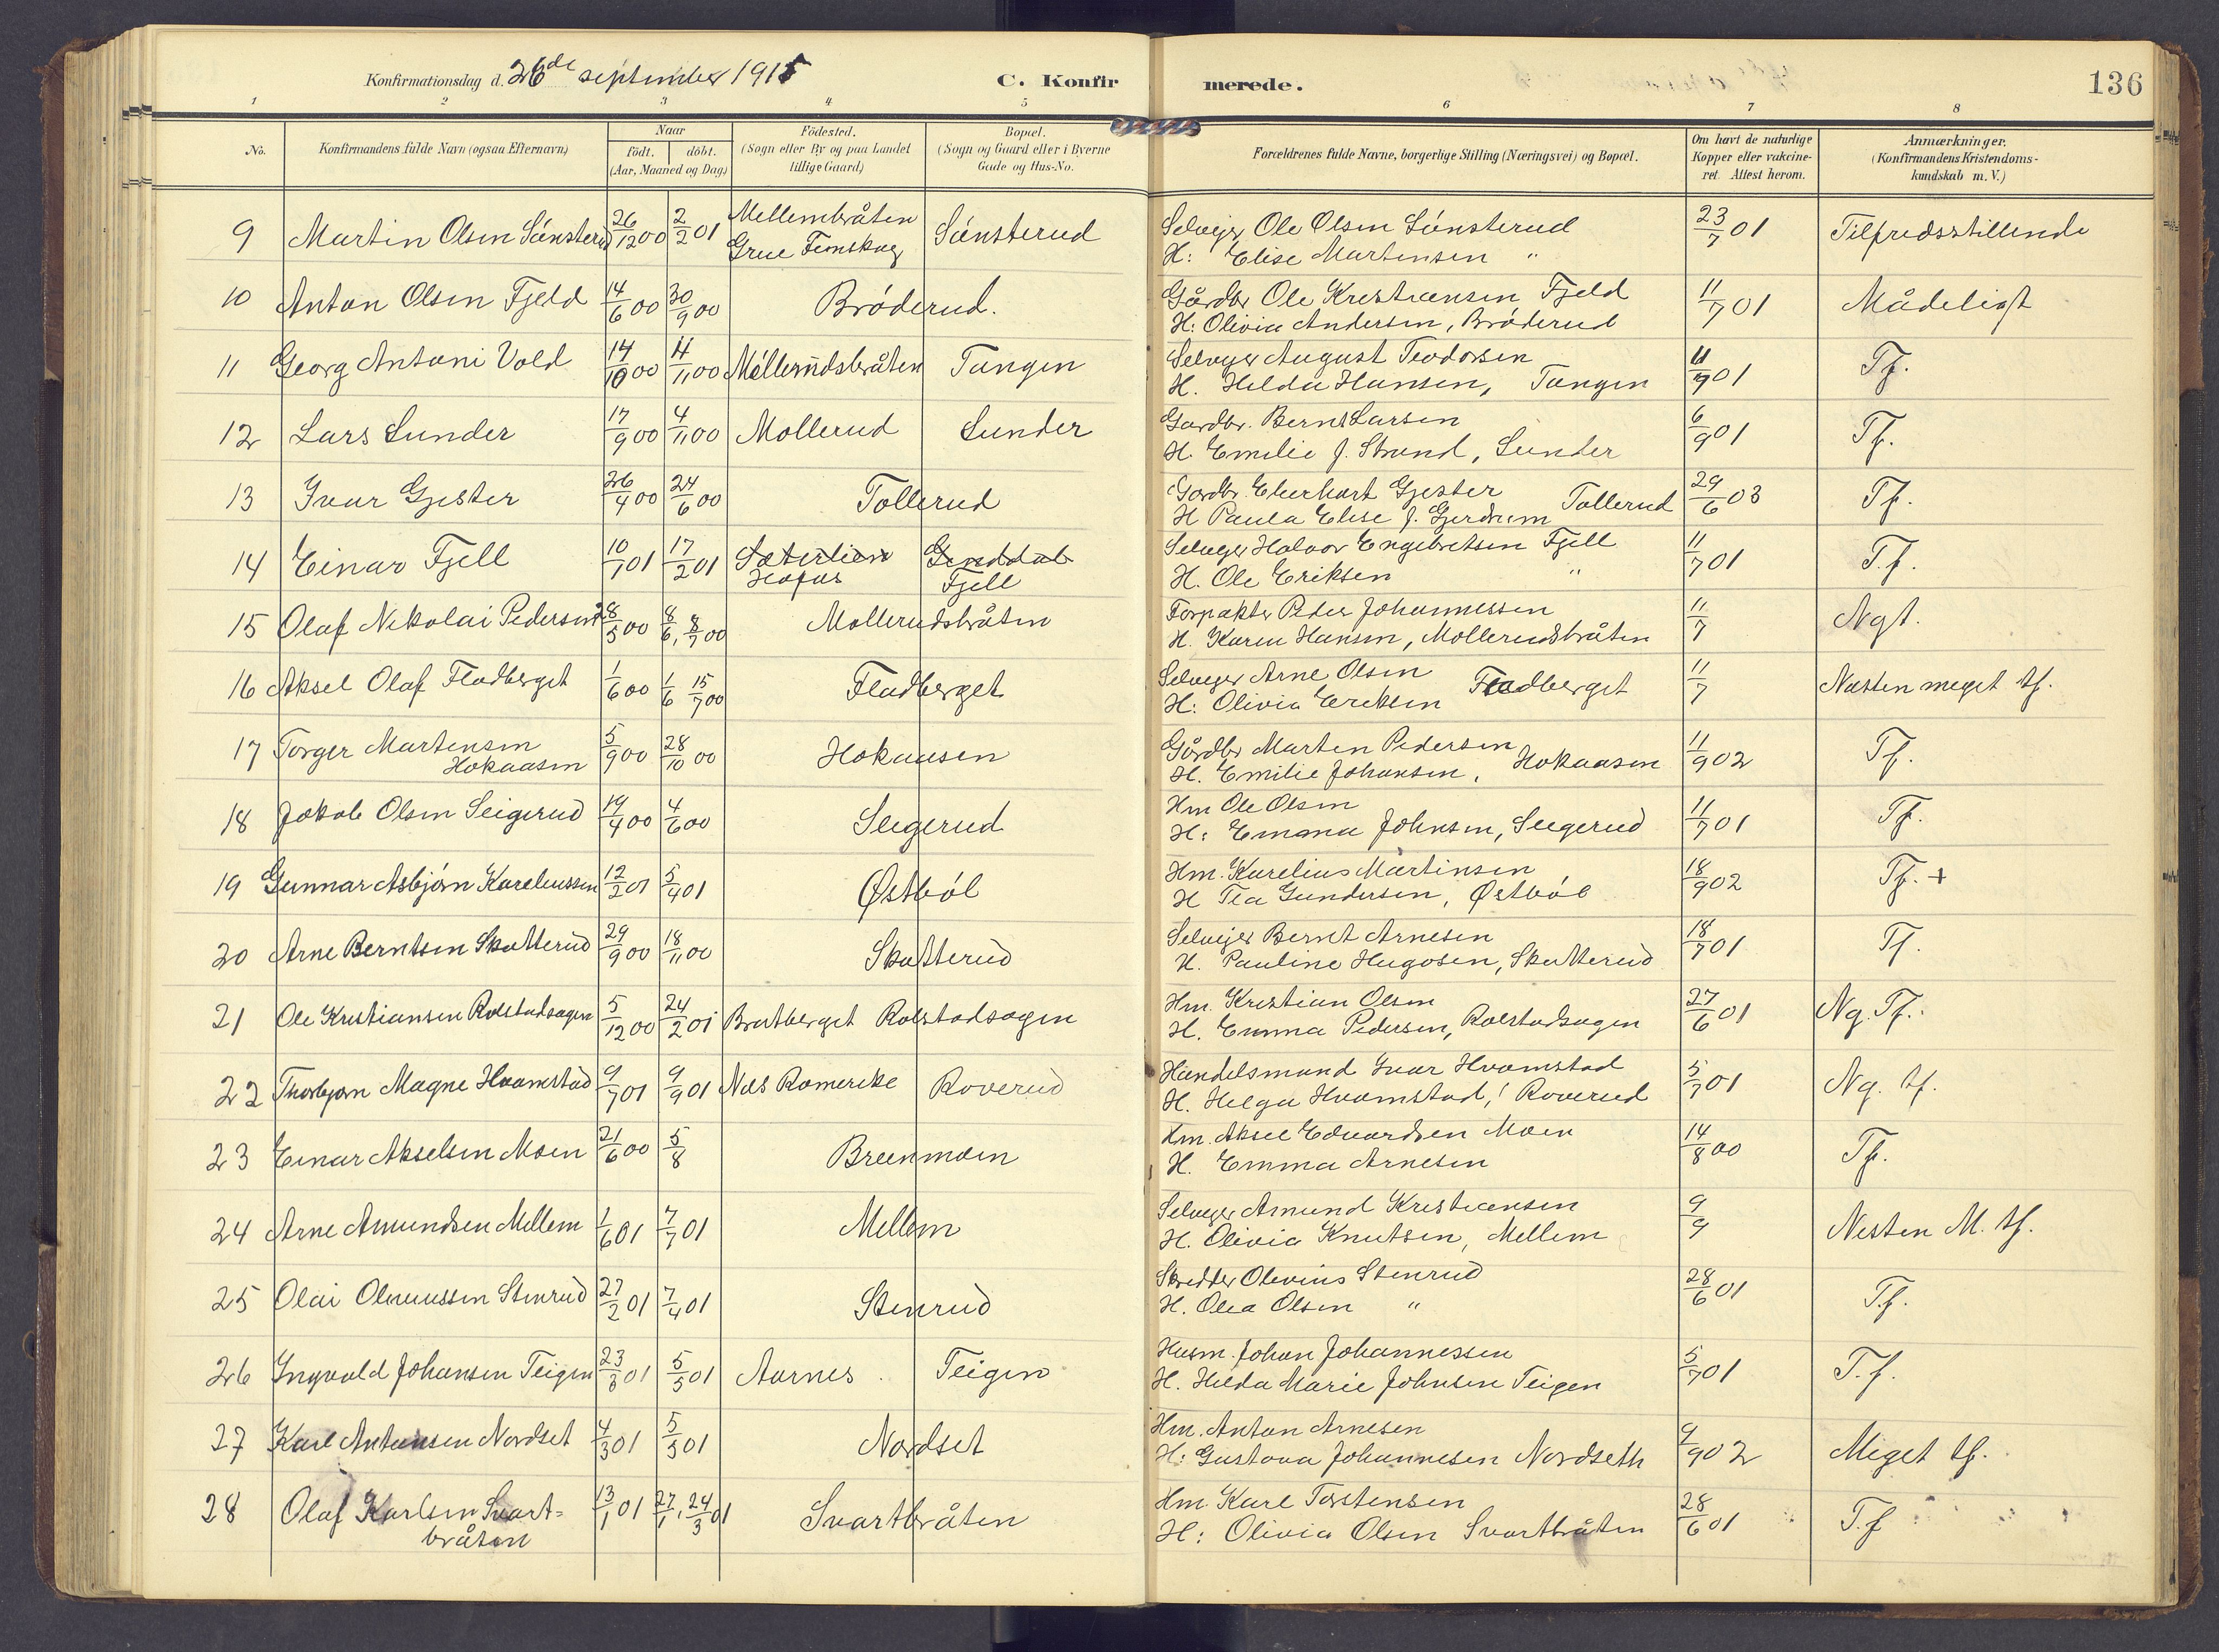 Konfirmationsdag d. 26de september 1915 C. Konfirmerede. 136
1 2 3 4 5 6 7 8
No. Konfirmandens fulde Navn (ogsaa Efternavn) Naar födt. döbt. (Aar, Maaned og Dag) Födested. (Sogn eller By og paa Landet tillige Gaard) Bopæl. (Sogn og Gaard eller i Byerne Gade og Hus-No. Forældrenes fulde Navne, borgerlige Stilling (Næringsvei) og Bopæl. Om havt de naturlige Kopper eller vakcineret. Attest herom. Anmærkninger. (Konfirmandens Kristendomskundskab m. V.)
9 Martin Olsen Sönsterud 26/12 00 2/2 01 Mellembråten Grue Finnskog Sönsterud Selveger Ole Olsen Sönsterud 23/7 01 Tilfredsstillende
H: Elise Martensen "
10 Anton Olsen Fjeld 14/6 00 30/9 00 Bröderud. Gårdbr Ole Kristiansen Fjeld 11/7 01 Mådeligt
H: Olivia Andersen, Bröderud
11 Georg Antoni Vold 14/10 00 4/11 00 Möllerudsbråten Tangen Selveger August Teodorsen 11/9 01 Tf.
H. Hilda Hansen, Tangen
12 Lars Sunder 17/9 00 4/11 00 Mollerud Sunder Gardbr. Bernt Larsen 6/9 01 Tf.
H. Emilie f. Strand, Sunder
13 Ivar Gjester 26/4 00 24/6 00 Tollerud Gardbr. Eherhart Gjester 29/6 03 Tf.
H Paula Elise f. Gjerdrum Tollerud
14 Einar Fjell 10/1 01 17/2 01 Sæterlien Hofos Fjell Selveger Halvor Engebretsen Fjell 11/7 01 T.f.
H. Ole Eriksen "
15 Olaf Nikolai Pedersen 28/5 00 8/6, 8/7 00 Mollerudsbråten Forpakter Peder Johannessen 11/7 Ngt.
H. Karen Hansen, Mollerudsbråten
16 Aksel Olaf Fladberget 1/6 00 1/6 15/7 00 Fladberget Selveger Arne Olsen 11/7 Næsten meget tf.
H: Olivia Eriksen Fladberget
17 Torger Martensen Hokaasen 5/9 00 28/10 00 Hokaasen Gårdbr Marten Pedersen 11/9 02 Tf.
H. Emilie Johansen, Hokaasen
18 Jakob Olsen Seigerud 19/4 00 4/6 00 Seigerud Hm Ole Olsen 11/7 01 Tf.
H: Emma Johnsen, Seigerud
19 Gunnar Asbjörn Kareliussen 12/2 01 5/4 01 Østböl Hm. Karelius Martinsen 18/9 02 Tf. +
H Tea Gundersen, Østböl
20 Arne Berntsen Skutterud 29/9 00 18/11 00 Skutterud Selveger Bernt Arnesen 18/7 01 Tf.
H. Pauline Hugosen, Skutterud
21 Ole Kristiansen Rolstadsagen 5/12 00 24/2 01 Bratberget Rolstadsagen Hm. Kristian Olsen 27/6 01 Ng. Tf.
H. Emma Pedersen, Rolstadsagen
22 Thorbjørn Magne Hvamstad 9/7 01 9/9 01 Næs Romerike Roverud Handelsmand Ivar Hvamstad 5/7 01 Ng. tf.
H. Helga Hvamstad, Roverud
23 Einar Akselsen Moen 21/6 00 5/8 Breenmoen Hm. Aksel Edvardsen Moen 14/8 00 Tf.
H. Emma Arnesen
24 Arne Amundsen Mellem 1/6 01 7/7 01 Mellem Selveger Amund Kristiansen 9/9 Nesten M. tf.
H. Olivia Knutsen, Mellem
25 Olai Olaviussen Stenrud 27/2 01 7/4 01 Stenrud Skredder Olavius Stenrud 28/6 01 T.f.
H. Olea Olsen "
26 Ingvald Johansen Teigen 23/3 01 5/5 01 Aarnes Teigen Husm. Johan Johannessen 5/7 01 T.f.
H. Hilda Marie Johnsen Teigen
27 Karl Antonsen Nordset 4/3 01 5/5 01 Nordset Hm. Anton Arnesen 9/9 02 Meget tf.
H: Gustava Johannesen Nordseth
28 Olaf Karlsen Svart= bråten 13/1 01 27/1, 24/3 01 Svartbråten Hm. Karl Torstensen 28/6 01 T.f
H: Olivia Olsen Svartbråten